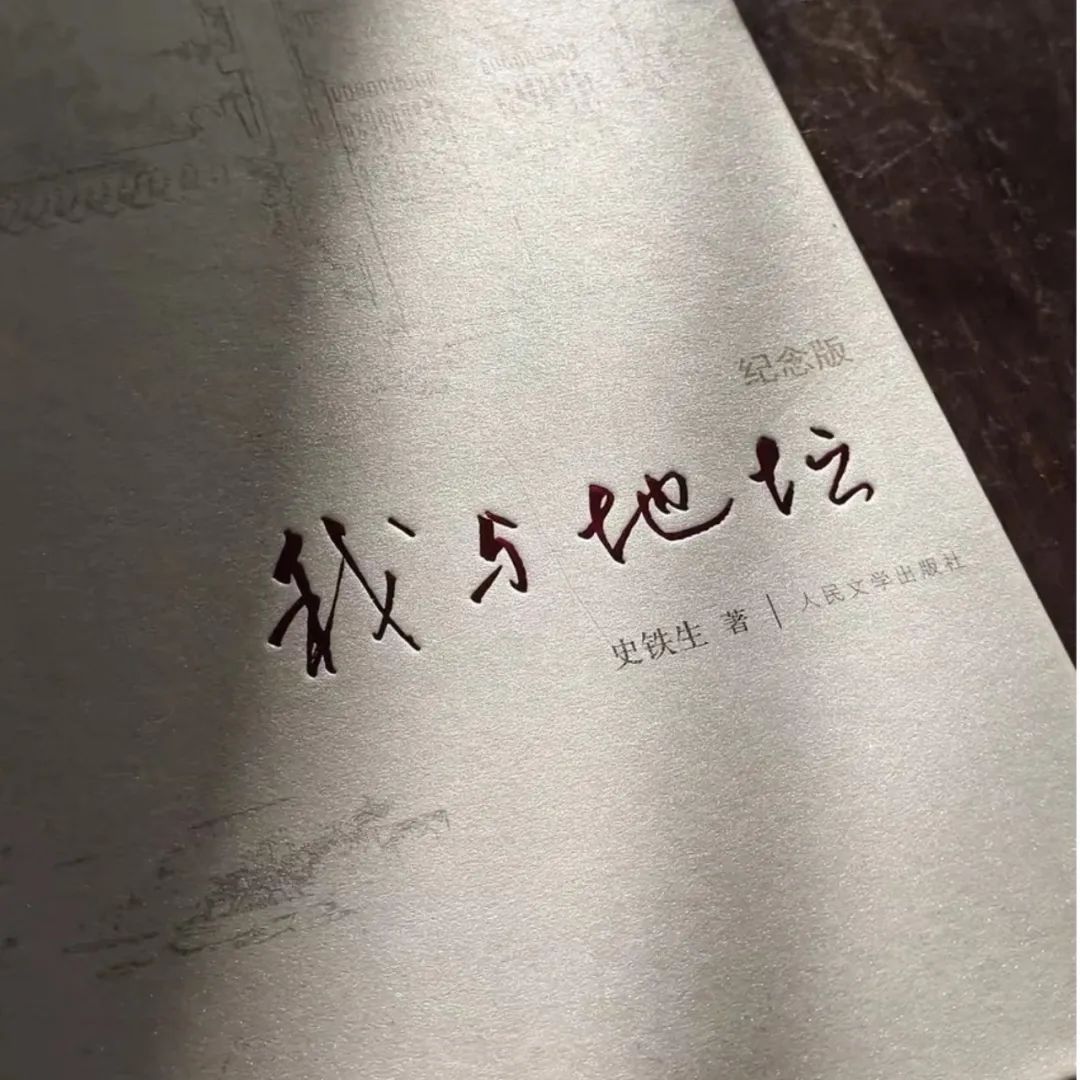 纪念版
我与地坛
史铁生 著｜人民文学出版社